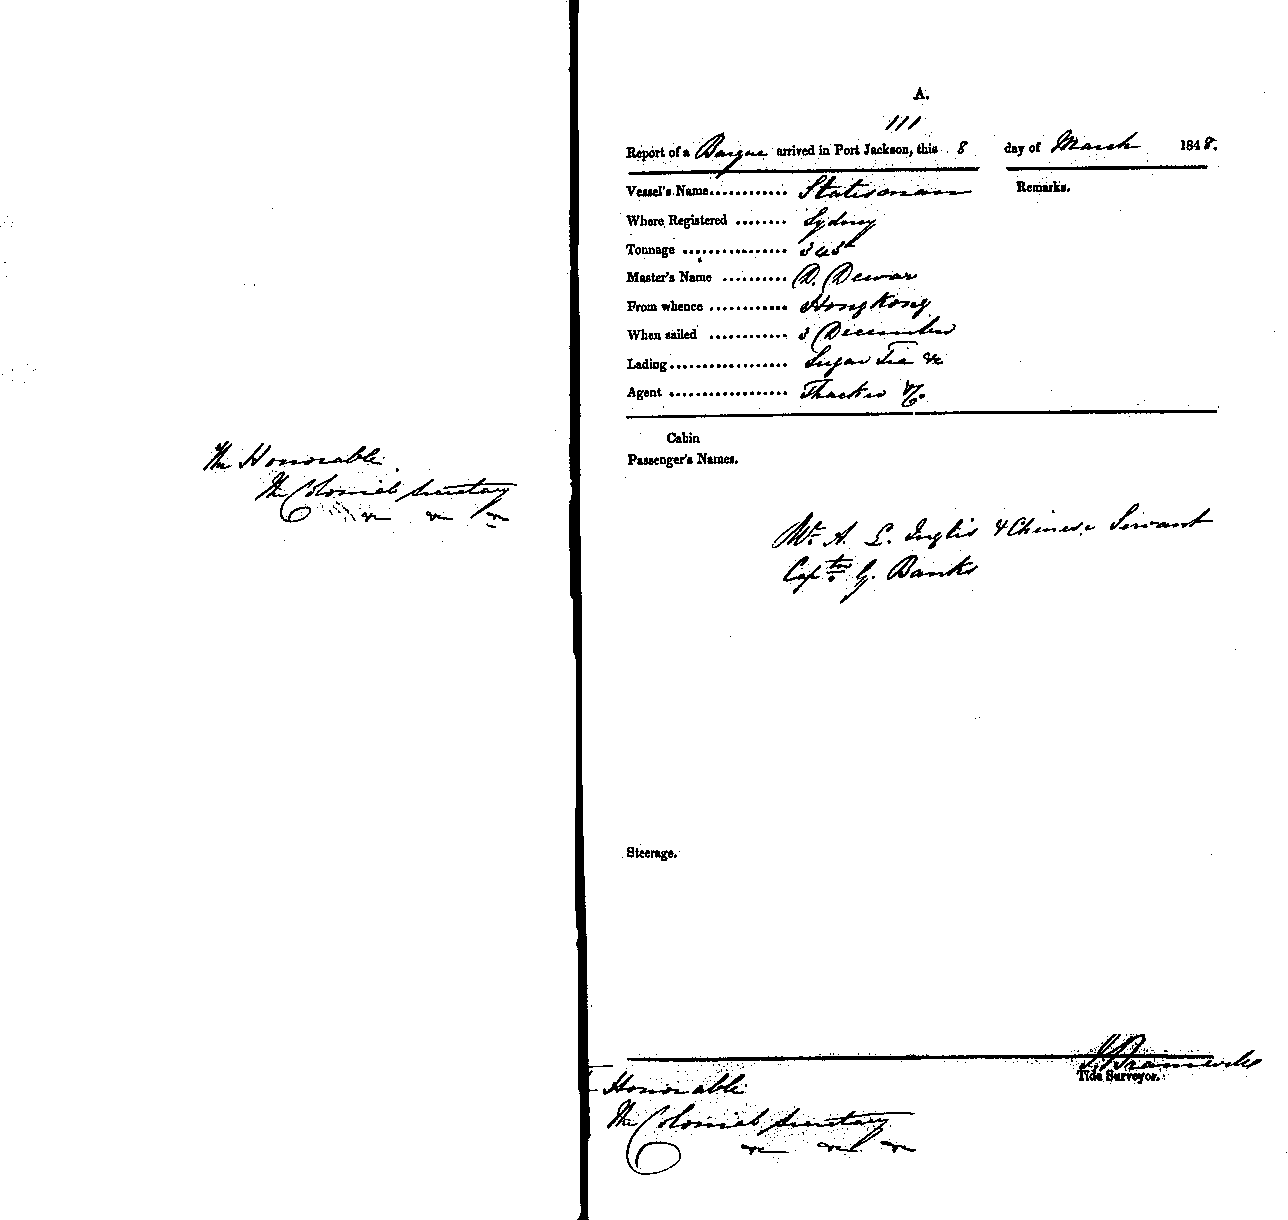 The Honorable
The Colonial Secretary
&c &c &c
A.
111
Report of a Barque arrived in Port Jackson, this 8 day of March 1848.
Vessel's Name............ Statesman
Remarks.
Where Registered ........ Sydney
Tonnage ................ 345
Master's Name .......... D. Dewar
From whence ............ Hong Kong
When sailed ............ 3 December
Lading.................. Sugar Tea &c
Agent .................. Thacker & Co.
Cabin
Passenger's Names.
Mr. A. L. Inglis & Chinese Servant
Captn. G. Banks
Steerage.
Tide Surveyor.
Honorable
The Colonial Secretary
&c &c &c